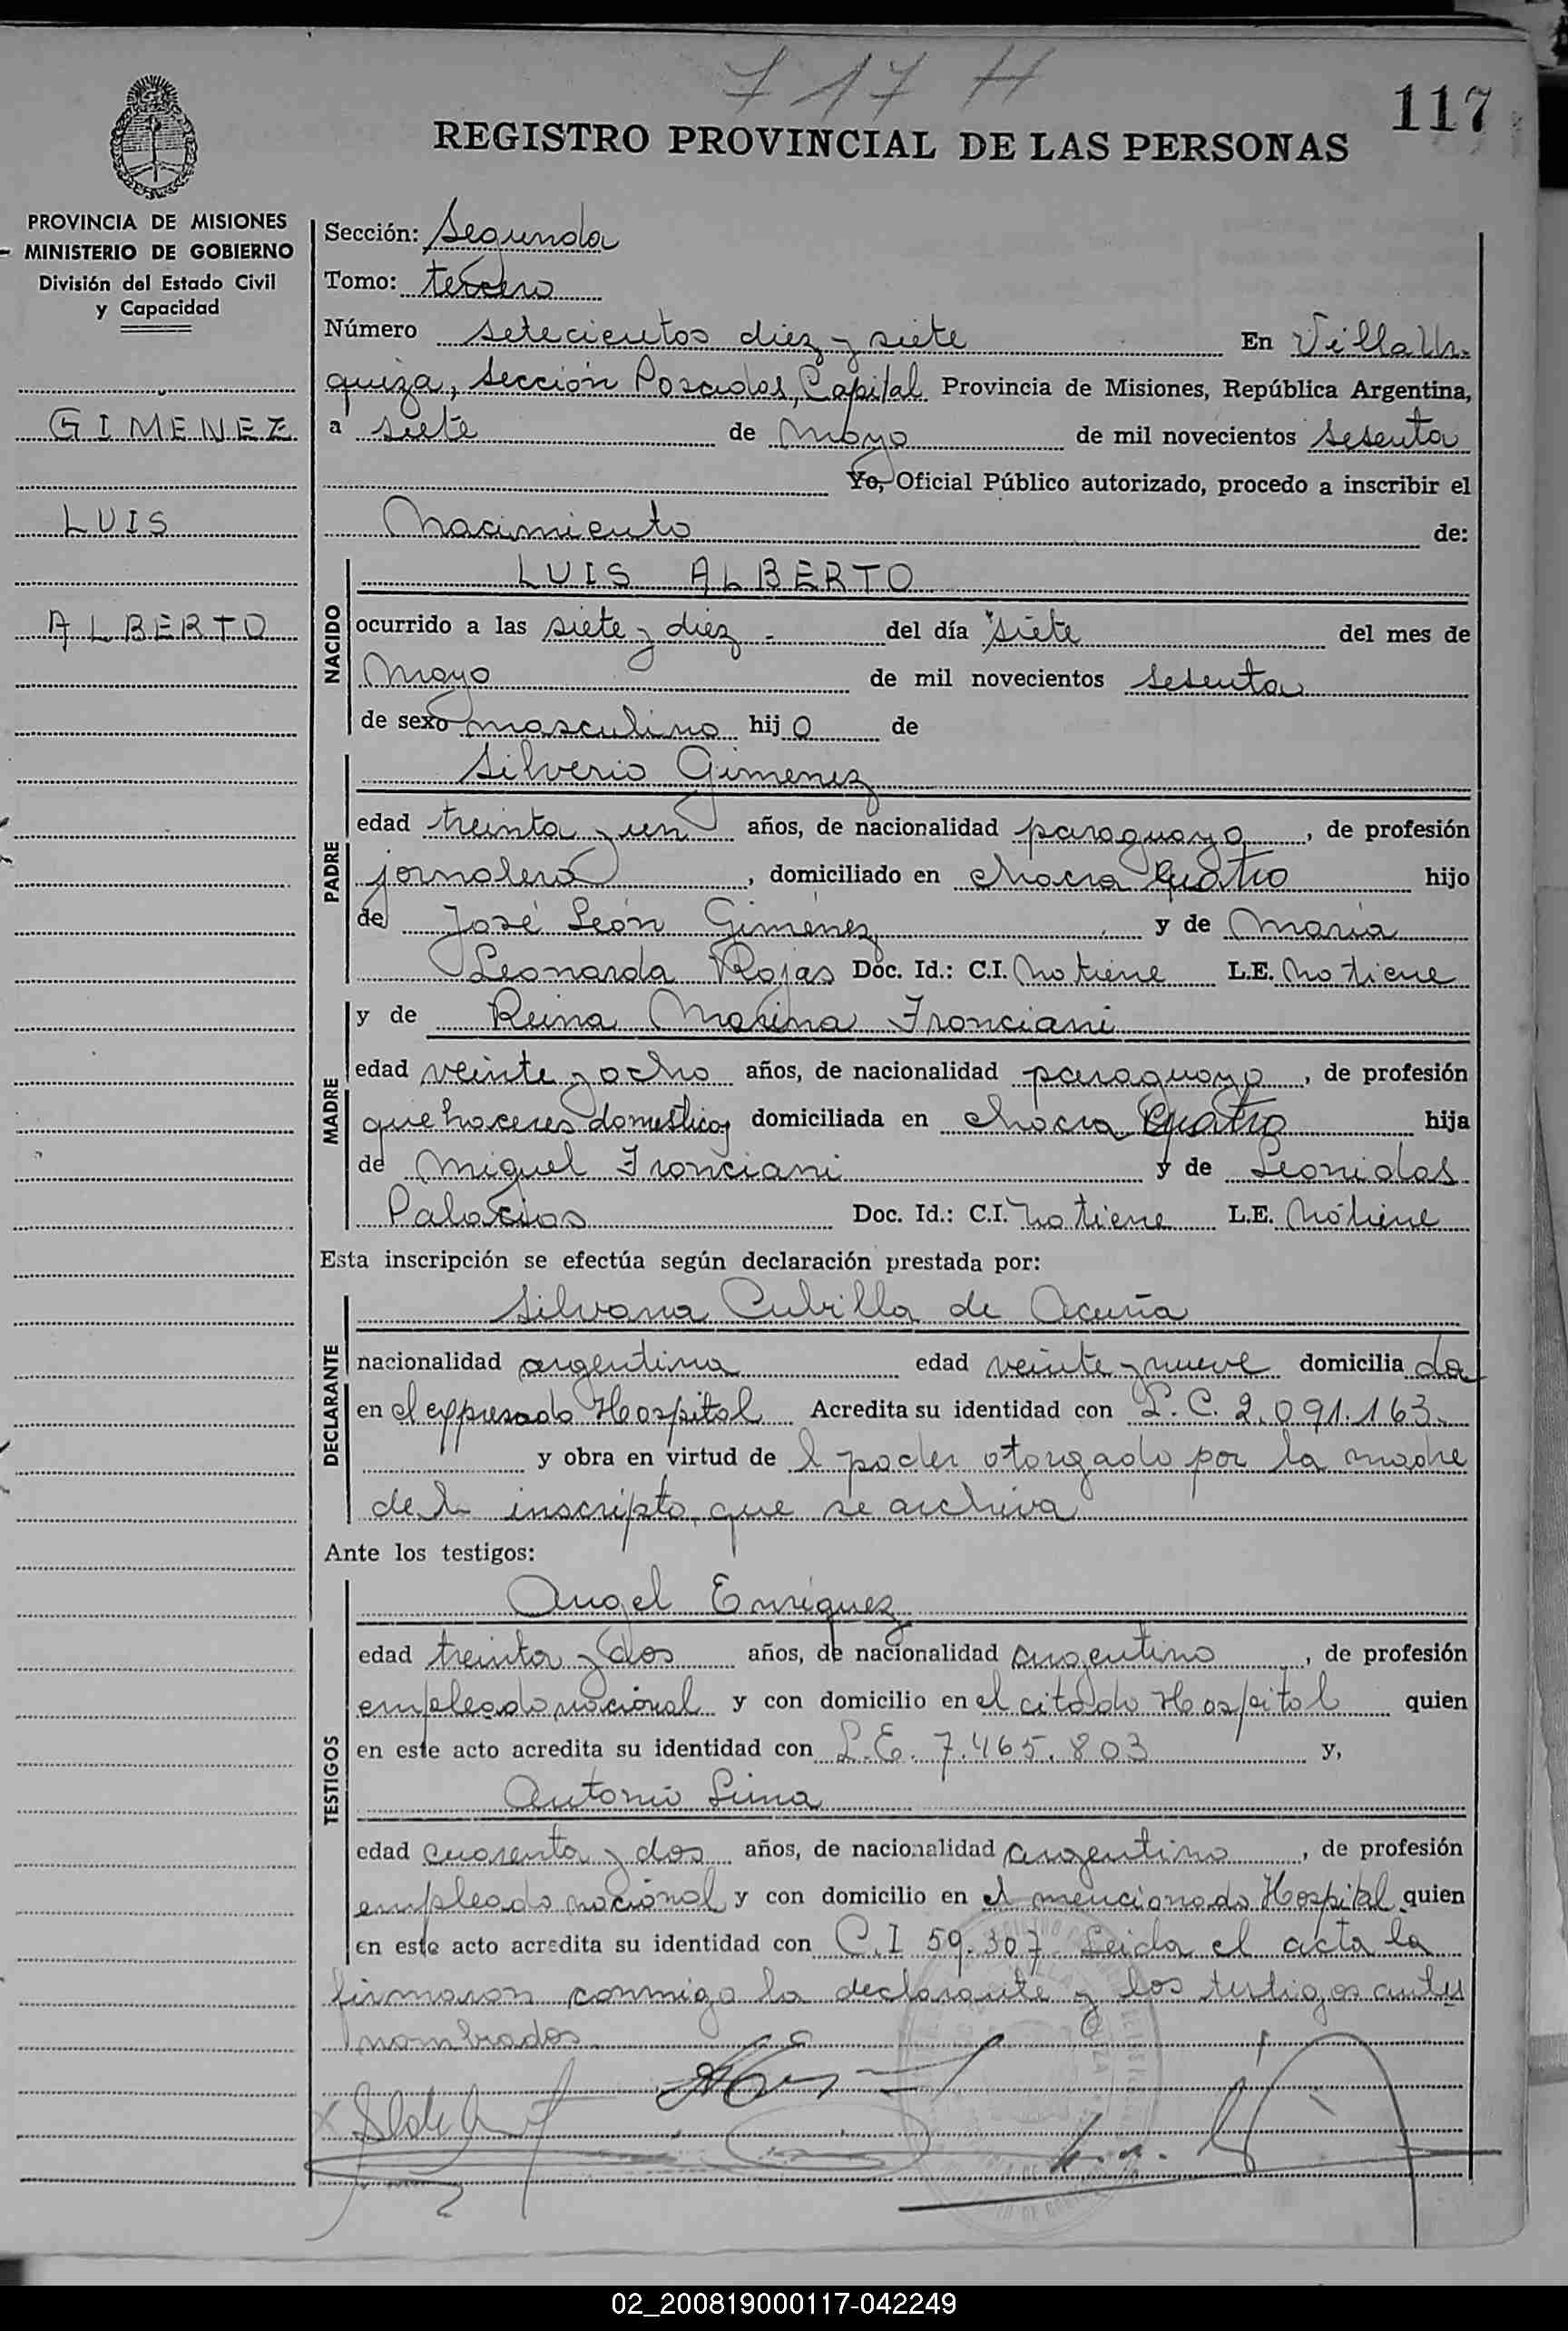 717 H
117
REGISTRO PROVINCIAL DE LAS PERSONAS
PROVINCIA DE MISIONES
MINISTERIO DE GOBIERNO
División del Estado Civil
y Capacidad
GIMENEZ
LUIS
ALBERTO
Sección: Segunda
Tomo: tercero
Número setecientos diez y siete En Villa Ur-
quiza, Sección Posadas, Capital Provincia de Misiones, República Argentina,
a siete de Mayo de mil novecientos sesenta
Yo, Oficial Público autorizado, procedo a inscribir el
Nacimiento de:
NACIDO
LUIS ALBERTO
ocurrido a las siete y diez - del día siete del mes de
Mayo de mil novecientos sesenta
de sexo masculino hijo de
PADRE
Silverio Gimenez
edad treinta y un años, de nacionalidad paraguaya, de profesión
jornalero, domiciliado en chacra Cuatro hijo
de José León Gimenez y de María
Leonarda Rojas Doc. Id.: C.I. No tiene L.E. No tiene
MADRE
y de Reina Maxima Franciani
edad veinte y ocho años, de nacionalidad paraguaya, de profesión
que haceres domesticos domiciliada en chacra Cuatro hija
de Miguel Franciani y de Leonidas
Palacios Doc. Id.: C.I. No tiene L.E. No tiene
Esta inscripción se efectúa según declaración prestada por:
DECLARANTE
Silvana Cubilla de Acuña
nacionalidad argentina edad veinte y nueve domiciliada
en el expresado Hospital Acredita su identidad con L.C. 2.091.163.
y obra en virtud de l poder otorgado por la madre
del inscripto, que se archiva
Ante los testigos:
TESTIGOS
Angel Enriquez
edad treinta y dos años, de nacionalidad argentino, de profesión
empleado nacional y con domicilio en el citado Hospital quien
en este acto acredita su identidad con L.E. 7.465.803 y,
Antonio Lima
edad cuarenta y dos años, de nacionalidad argentino, de profesión
empleado nacional y con domicilio en el mencionado Hospital quien
en este acto acredita su identidad con C.I 59.307 Leida el acta la
firmaron conmigo la declarante y los testigos antes
nombrados
02_200819000117-042249